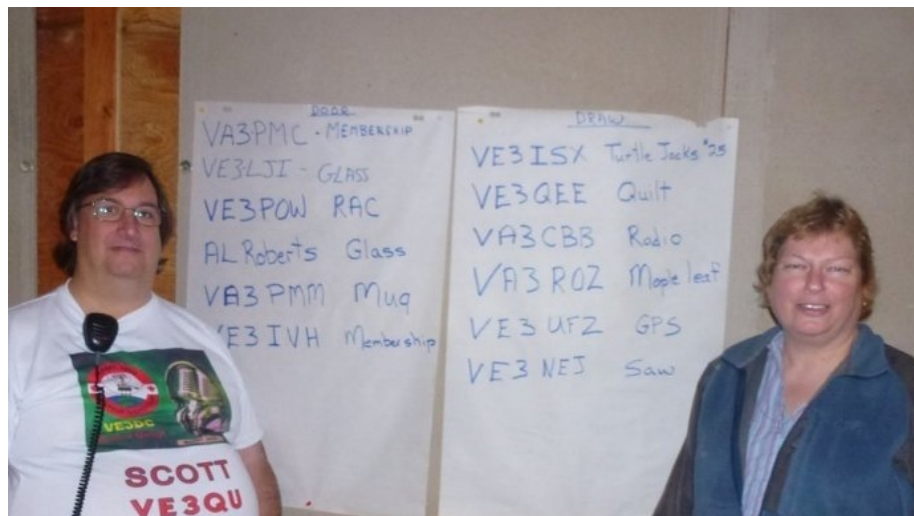 DOOR
VA3PMC - MEMBERSHIP
VE3LJI - GLASS
VE3POW RAC
AL Roberts Glass
VA3PMM Mug
VE3IVH Membership
DRAW
VE3ISX Turtle Jacks $25
VE3QEE Quilt
VA3CBB Radio
VA3ROZ Mapleleaf
VE3UFZ GPS
VE3NEJ Saw
VE3DC
SCOTT
VE3QU